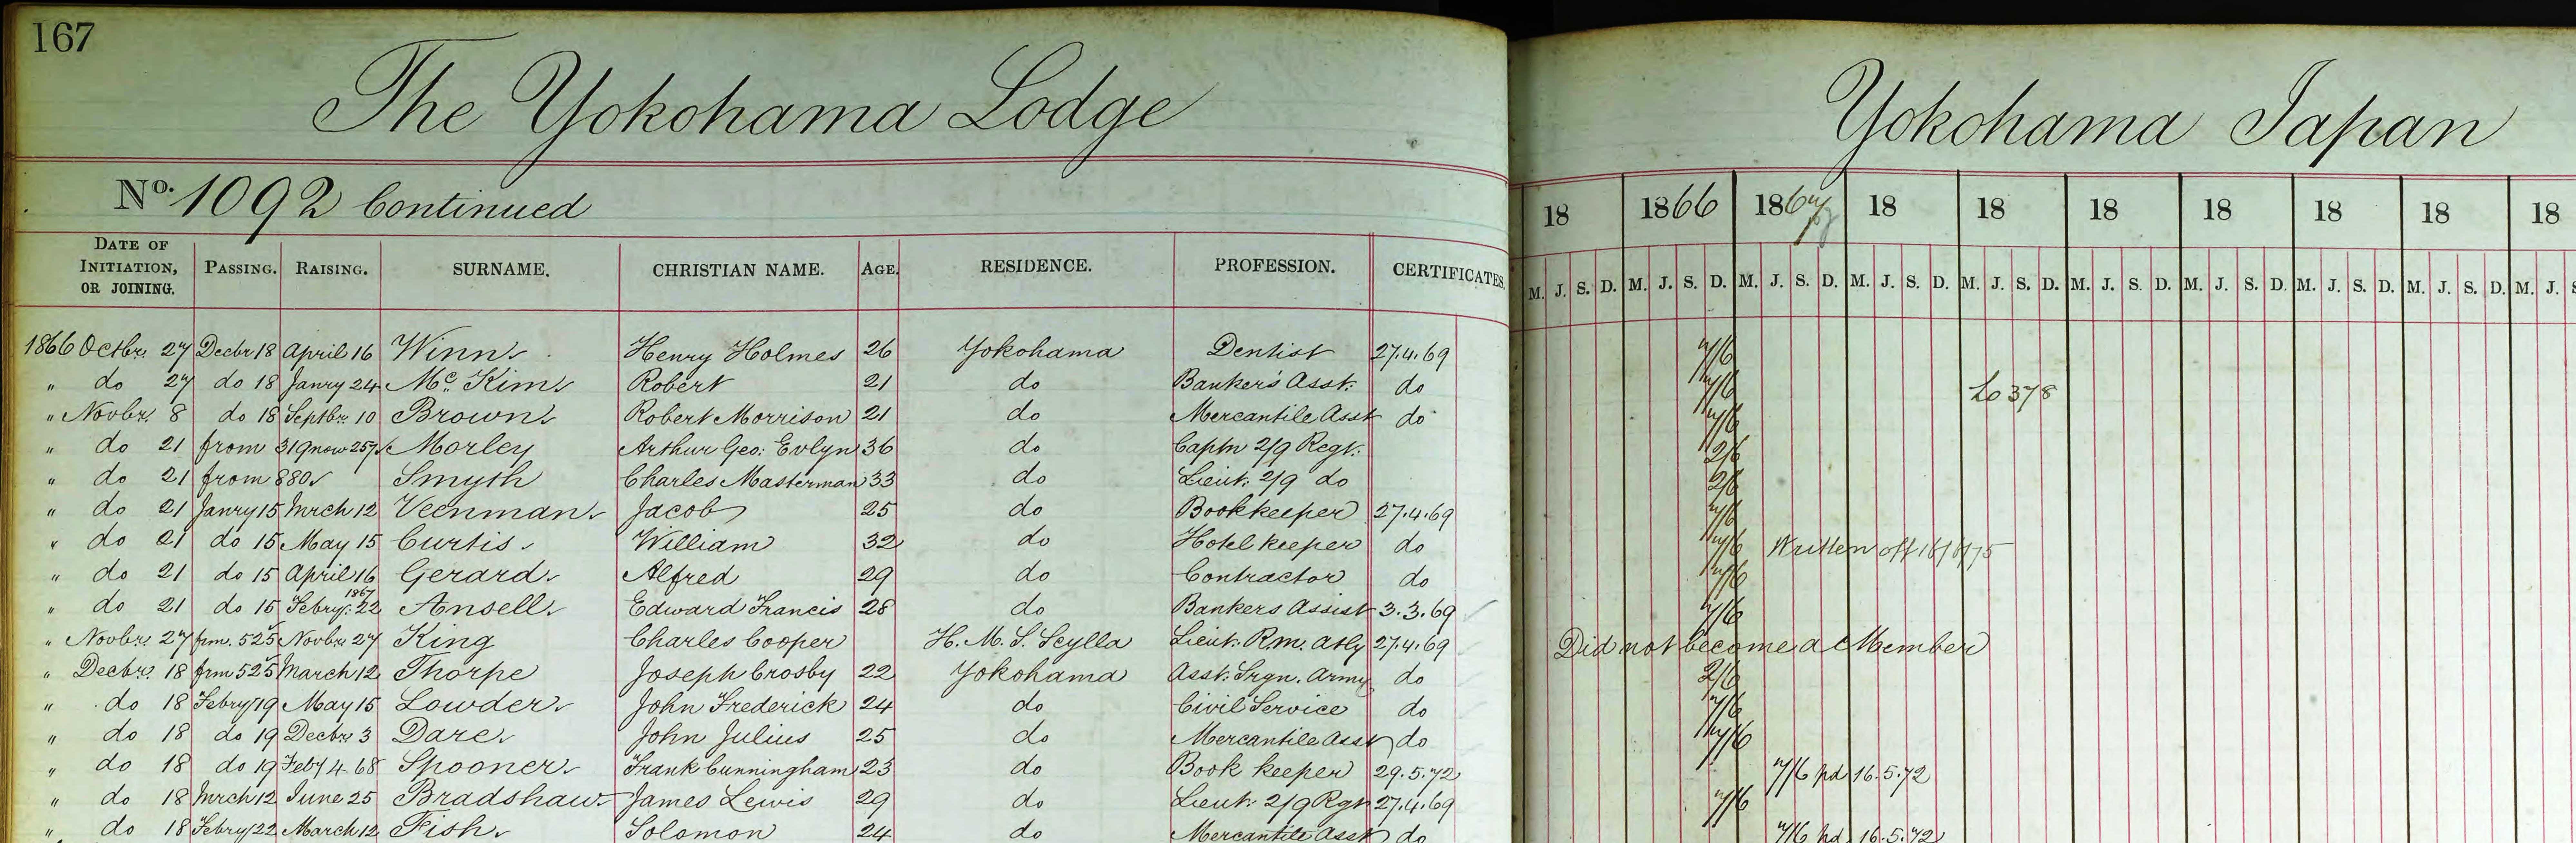 167
The Yokohama Lodge
Yokohama Japan
No. 1092 Continued
18 1866 1867 18 18 18 18 18 18 18
DATE OF INITIATION, OR JOINING. PASSING. RAISING. SURNAME. CHRISTIAN NAME. AGE. RESIDENCE. PROFESSION. CERTIFICATES.
M. J. S. D. M. J. S. D. M. J. S. D. M. J. S. D. M. J. S. D. M. J. S. D. M. J. S. D. M. J. S. D. M. J. S. D. M. J. S
1866 Octbr. 27 Decbr 18 April 16 Winn Henry Holmes 26 Yokohama Dentist 27.4.69 7/6
" do 27 do 18 Janry 24 Mc. Kim Robert 21 do Banker's Asst. do 7/6 to 378
" Novbr. 8 do 18 Septbr. 10 Brown Robert Morrison 21 do Mercantile Asst do 7/6
" do 21 from 319 now 257 Morley Arthur Geo: Evlyn 36 do Captn 2/9 Regt. 2/6
" do 21 from 880 Smyth Charles Masterman 33 do Lieut. 2/9 do 2/6
" do 21 Janry 15 Mrch 12 Veenman Jacob 25 do Bookkeeper 27.4.69 7/6
" do 21 do 15 May 15 Curtis William 32 do Hotel keeper do 7/6 Written off 18/8/75
" do 21 do 15 April 16 Gerard Alfred 29 do Contractor do 7/6
" do 21 do 15 Febry. 22 1867 Ansell Edward Francis 28 do Bankers Assist 3.3.69 7/6
" Novbr. 27 frm. 525 Novbr 27 King Charles Cooper H. M. S. Scylla Lieut. R.m. Atly 27.4.69 Did not become a Member
" Decbr. 18 frm 525 March 12 Thorpe Joseph Crosby 22 Yokohama Asst. Srgn. Army do 2/6
" do 18 Febry 19 May 15 Lowder John Frederick 24 do Civil Service do 7/6
" do 18 do 19 Decbr 3 Dare John Julius 25 do Mercantile Asst do 7/6
" do 18 do 19 Feby 4 68 Spooner Frank Cunningham 23 do Book keeper 29.5.72 7/6 pd 16.5.72
" do 18 Mrch 12 June 25 Bradshaw James Lewis 29 do Lieut. 2/9 Rgt 27.4.69 7/6
" do 18 Febry 22 March 12 Fish Solomon 24 do Mercantile Asst do 7/6 pd 16.5.72